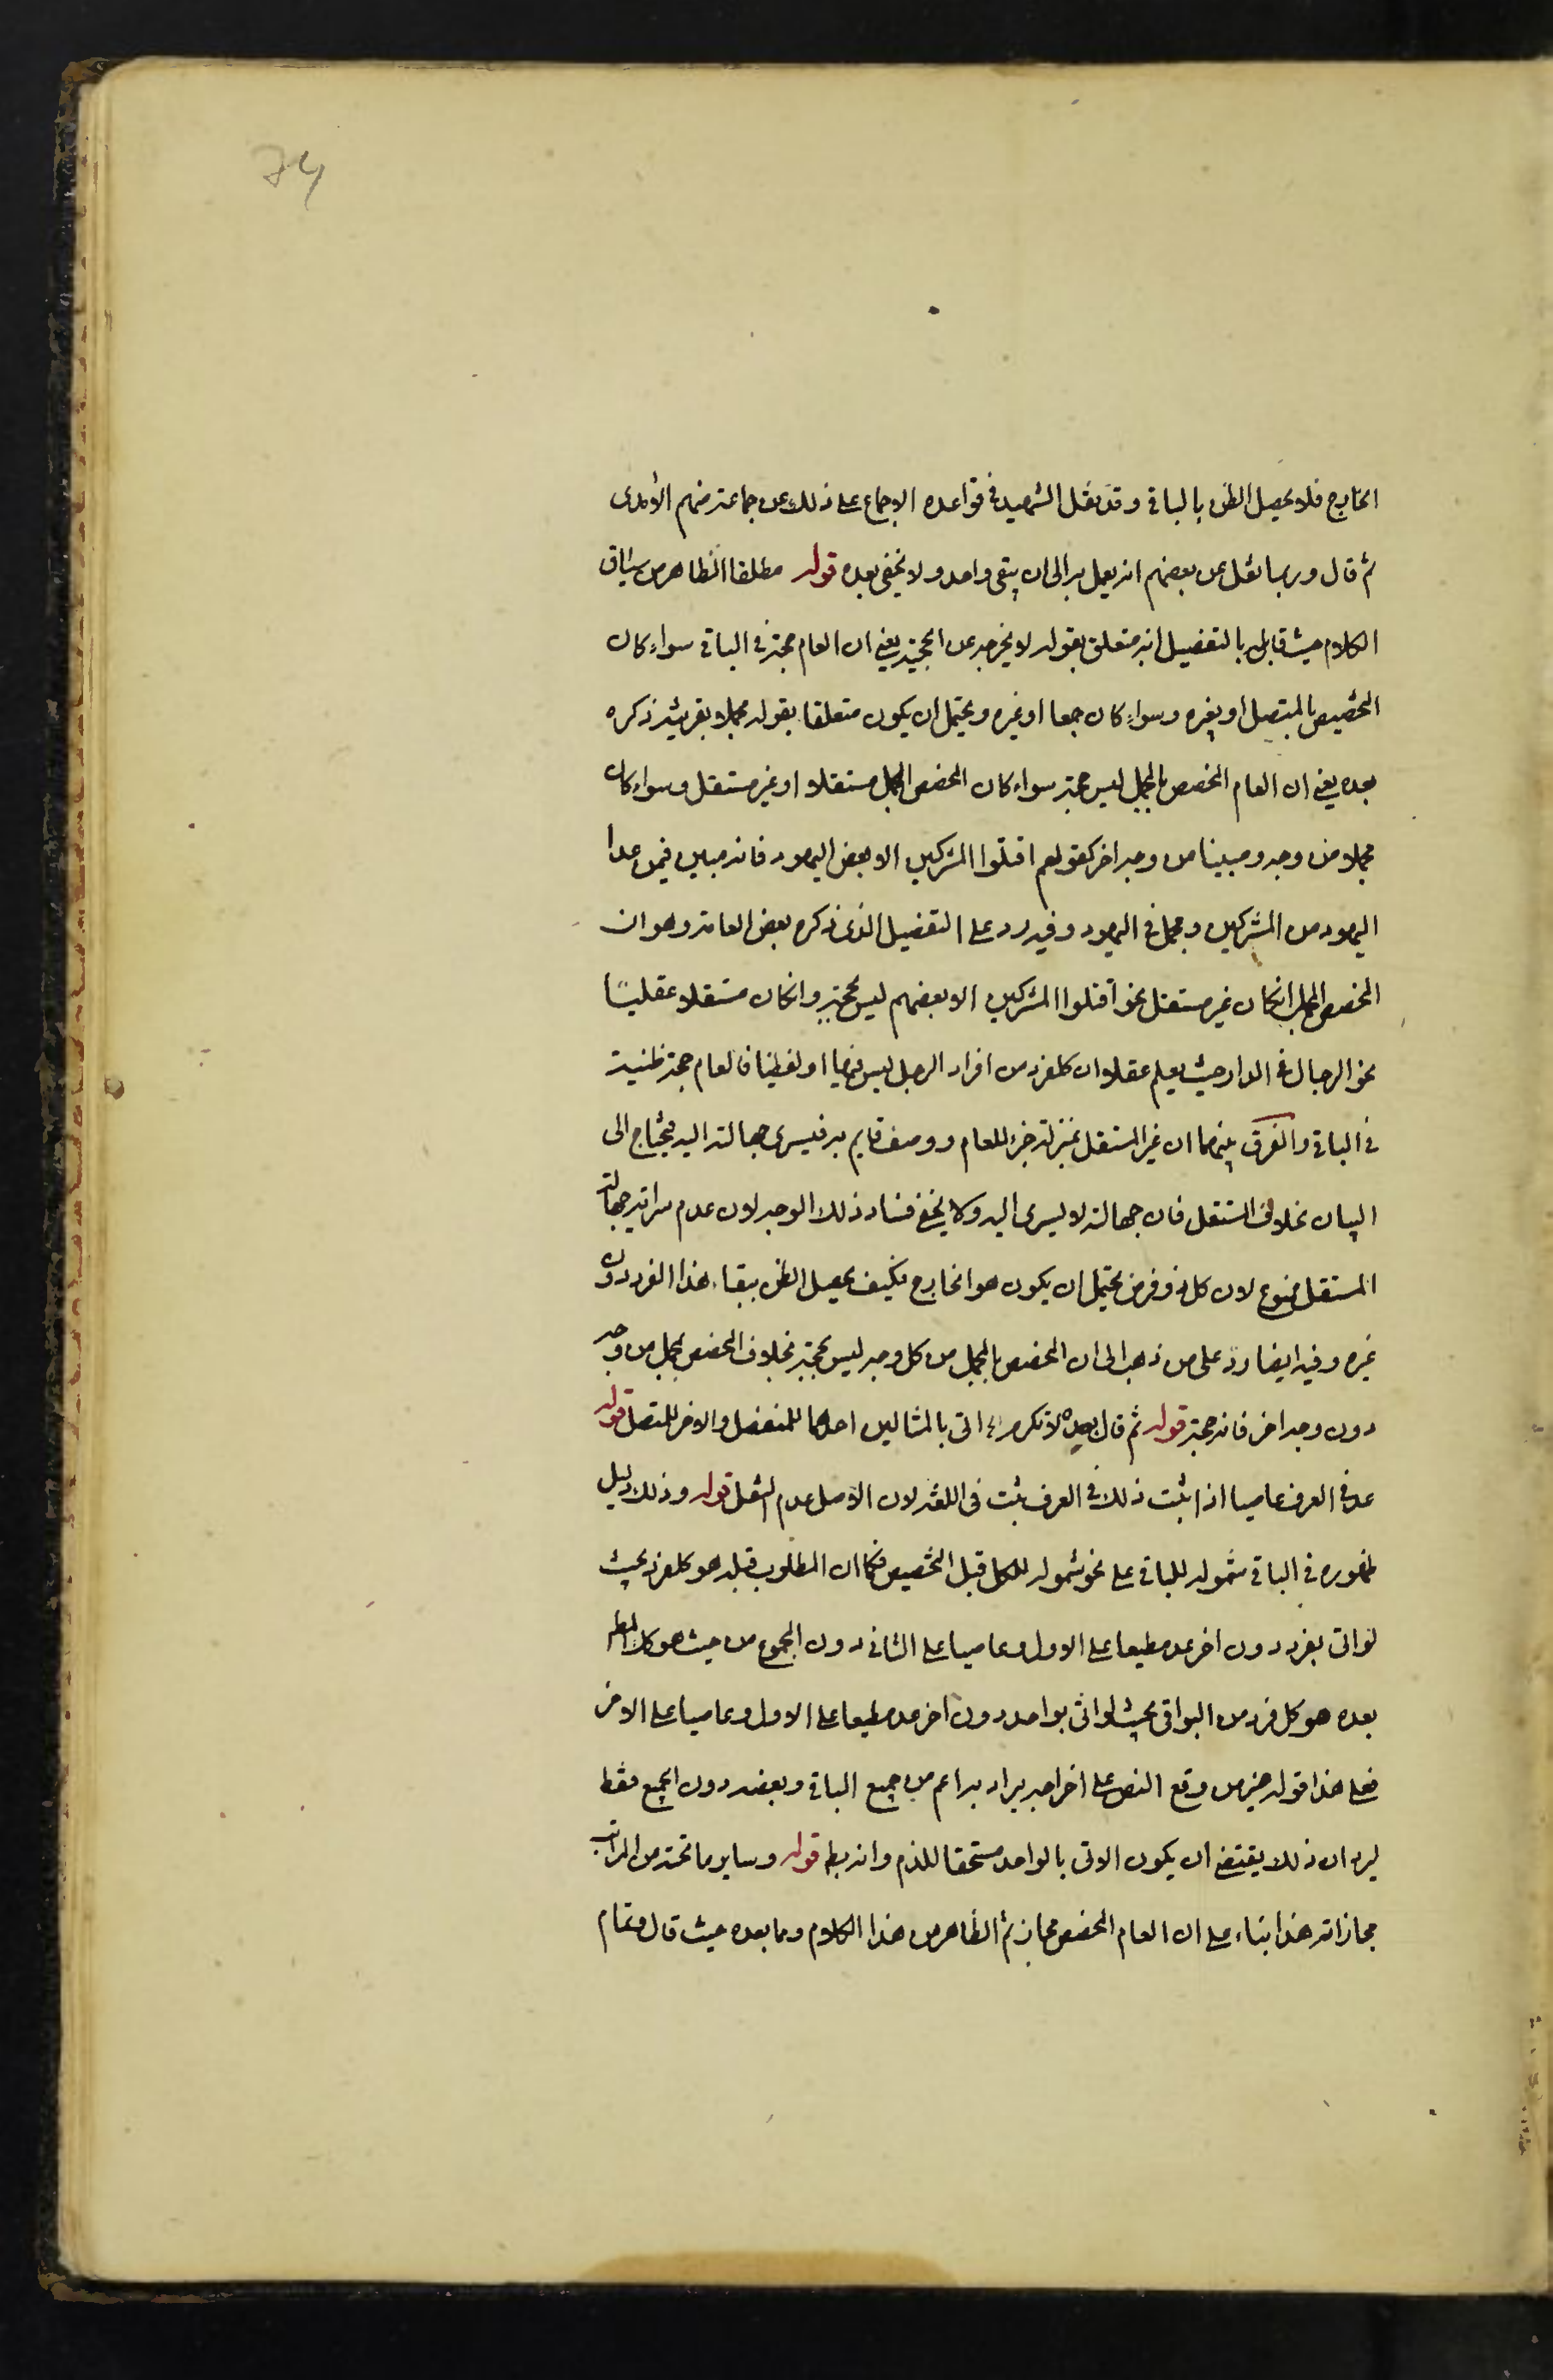 74
الخارج فلا يحصل الظن بالباقي وقد نقل الشهيد في قواعده الاجماع على ذلك عن جماعة منهم الآمدى
ثم قال وربما نقل عن بعضهم انه يعمل به الى ان يبقى واحد ولا يخفى بعده قوله مطلقا الظاهر من سياق
الكلام حيث قابله بالتفصيل انه متعلق بقوله لا يخرجه عن الحجية يعنى ان العام حجة في الباقي سواء كان
التخصيص بالمتصل او بغيره وسواء كان جمعا او غيره ويحتمل ان يكون متعلقا بقوله مجملا بقرينة ذكره
بعده يعنى ان العام المخصص بالمجمل ليس حجة سواء كان المخصص المجمل مستقلا او غير مستقل وسواء كان
مجملا من وجه ومبينا من وجه اخر كقولهم اقتلوا المشركين الا بعض اليهود فانه مبين فيمن عدا
اليهود من المشركين ومجمل في اليهود وفيه رد على التفصيل الذى ذكره بعض العامة وهو ان
المخصص المجمل انكان غير مستقل نحو اقتلوا المشركين الا بعضهم ليس بحجة وانكان مستقلا عقليا
نحو الرجال في الدار حيث يعلم عقلا ان كلفرد من افراد الرجل ليس فيها او لفظيا فالعام حجة ظنية
في الباقي والفرق بينهما ان غير المستقل بمنزلة جزء للعام ووصف قايم به فيسرى جهالته اليه فيحتاج الى
البيان بخلاف المستقل فان جهالته لا يسرى اليه ولا يخفى فساد ذلك الوجه لان عدم سراية جهالة
المستقل ممنوع لان كل فرد فرض يحتمل ان يكون هو الخارج فكيف يحصل الظن ببقاء هذا الفرد دون
غيره وفيه ايضا رد على من ذهب الى ان المخصص بالمجمل من كل وجه ليس بحجة بخلاف المخصص بمجمل من وجه
دون وجه اخر فانه حجة قوله ثم قال بعده لا تكرم اه اتى بالمثالين احدهما للمنفصل والاخر للمتصل قوله
عد في العرف عاصيا اذا ثبت ذلك في العرف ثبت في اللغة لان الاصل عدم النقل قوله وذلك دليل
ظهوره في الباقي شموله للباقي على نحو شموله للكل قبل التخصيص فكما ان المطلوب قبله هو كلفرد بحيث
لو اتى بفرد دون اخر عد مطيعا على الاول وعاصيا على الثانى دون المجموع من حيث هو كك المط
بعده هو كل فرد من البواقى بحيث لو اتى بواحد دون اخر عد مطيعا على الاول وعاصيا على الاخر
فعلى هذا قوله حين من وقع النص على اخراجه يراد به اعم من جميع الباقي وبعضه دون الجميع فقط
ليرد ان ذلك يقتضى ان يكون الاتى بالواحد مستحقا للذم وانه بط قوله وساير ما تحته من المراتب
مجازاته هذا بناء على ان العام المخصص مجاز ثم الظاهر من هذا الكلام وما بعده حيث قال وتمام